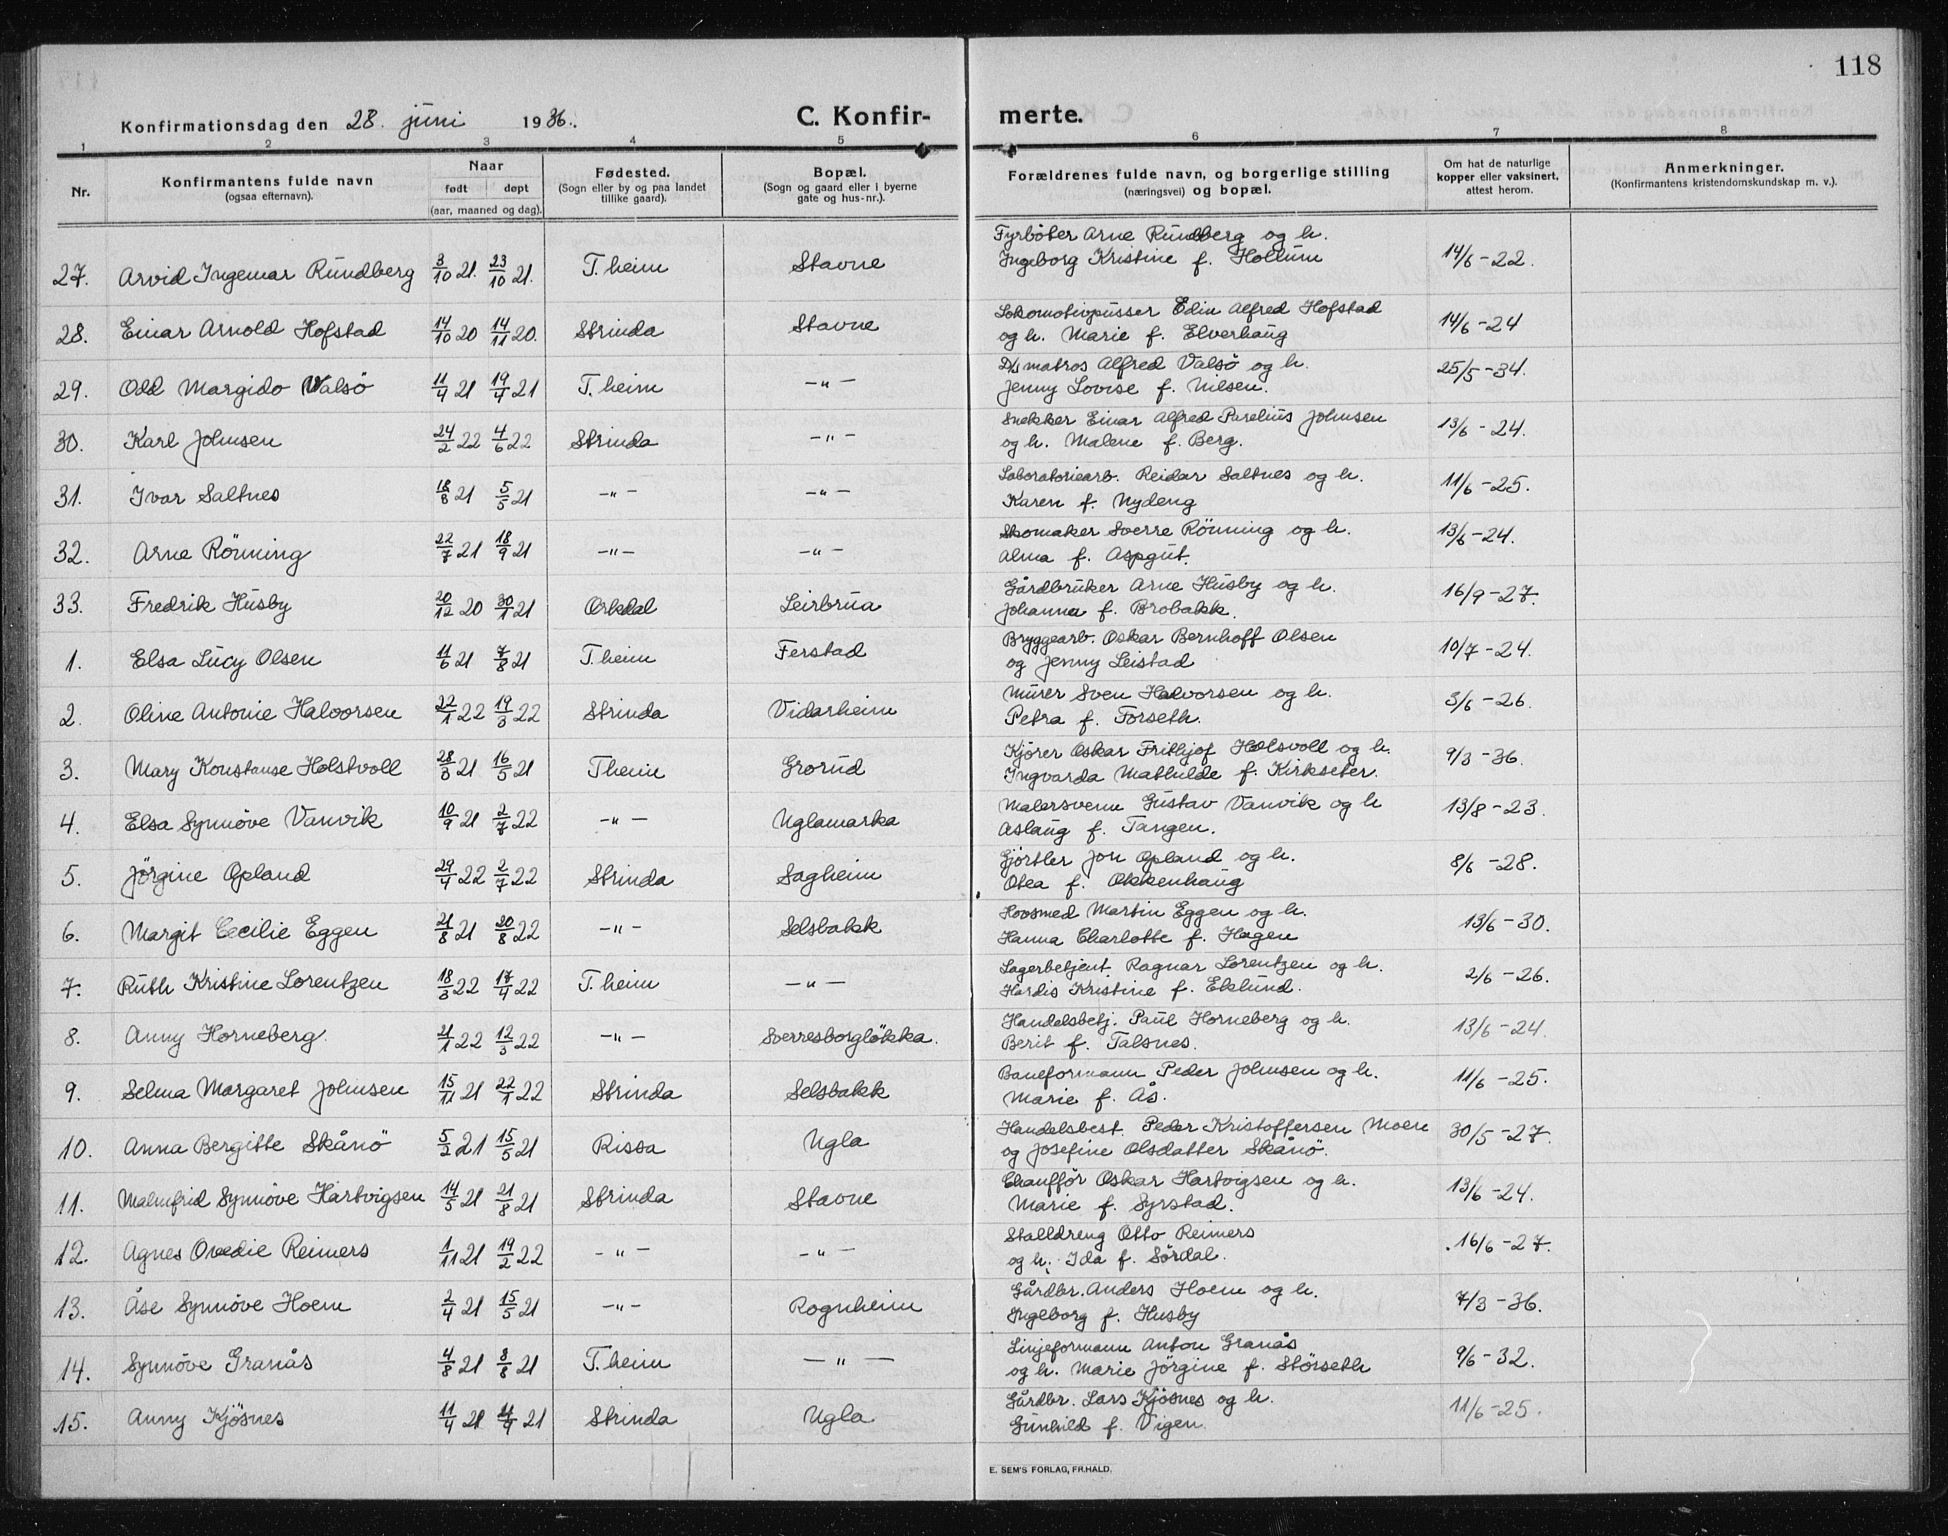 118
Konfirmationsdag den 28. juni 1936. C. Konfirmerte.
1 2 3 4 5 6 7 8
Nr. Konfirmantens fulde navn (ogsaa efternavn). Naar født døpt (aar, maaned og dag). Fødested. (Sogn eller by og paa landet tillike gaard). Bopæl. (Sogn og gaard eller i byerne gate og hus-nr.). Forældrenes fulde navn, og borgerlige stilling (næringsvei) og bopæl. Om hat de naturlige kopper eller vaksinert, attest herom. Anmerkninger. (Konfirmantens kristendomskundskap m. v.).
27. Arvid Ingemar Rundberg 3/10 21. 23/10 21. T.heim Stavne Fyrbøter Arne Rundberg og h. Ingeborg Kristine f. Hollum 14/6-22.
28. Einar Arnold Hofstad 14/10 20 14/11 20. Strinda Stavne Lokomotivpusser Edin Alfred Hofstad og h. Marie f. Elverhaug 14/6-24
29. Odd Margido Valsö 11/4 21 19/4 21 T.heim -"- matros Alfred Valsö og h. Jenny Lovise f. Nilsen. 25/5-34.
30. Karl Johnsen 24/2 22 4/6 22 Strinda -"- Snekker Einar Alfred Parelius Johnsen og h. Malene f. Berg. 13/6-24.
31. Ivar Saltnes 18/3 21 5/5 21 -"- -"- Laboratoriearb. Reidar Saltnes og h. Karen f. Nydeng 11/6-25.
32. Arne Rönning 22/7 21 18/9 21 -"- -"- Skomaker Sverre Rönning og h. Alma f. Aspgut. 13/6-24.
33. Fredrik Husby 20/12 20 30/1 21 Orkdal Leirbrua Gårdbruker Arne Husby og h. Johanna f. Brobakk. 16/9-27.
1. Elsa Lucy Olsen 11/6 21 7/8 21 T.heim Ferstad Bryggearb. Oskar Bernhoff Olsen og Jenny Leistad 10/7-24.
2. Oline Antonie Halvorsen 22/1 22 19/3 22 Strinda Vidarheim Murer Sven Halvorsen og h. Petra f. Forseth. 3/6-26.
3. Mary Konstanse Holstvoll 28/3 21 16/5 21 Theim Grorud Kjører Oskar Frithjof Holsvoll og h. Ingvarda Mathilde f. Kirkseter. 9/3-36.
4. Elsa Synnöve Vanvik 10/9 21 2/7 22 -"- Uglamarka Malersvenn Gustav Vanvik og h Aslaug f. Tangen. 13/8-23.
5. Jörgine Opland 29/4 22 2/7 22 Strinda Sagheim Gjörtler Jon Opland og h. Otea f. Okkenhaug 8/6-28.
6. Margit Cecilie Eggen 21/8 21 20/8 22 -"- Selsbakk Hovsmed Martin Eggen og h. Hanna Charlotte f. Hagen 13/6-30.
7. Ruth Kristine Lorentzen 18/3 22 17/4 22 T.heim -"- Lagerbetjent. Ragnar Lorentzen og h. Hardis Kristine f. Eklund. 2/6-26.
8. Anny Horneberg. 21/1 22 12/3 22 -"- Sverresborgløkka. Handelsbetj. Paul Horneberg og h. Berit f. Talsnes. 13/6-24.
9. Selma Margaret Johnsen 15/11 21 22/1 22 Strinda Selsbakk Baneformann Peder Johnsen og h. Marie f. Ås. 11/6-25.
10. Anna Bergitte Skånö 5/2 21 15/5 21 Rissa Ugla Handelsbest. Peder Kristoffersen Moen og Josefine Olsdatter Skånö. 30/5-27.
11. Malmfrid Synnöve Hartvigsen 14/5 21 21/8 21 Strinda Stavne Chauffør Oskar Hartvigsen og h. Marie f. Syrstad. 13/6-24.
12. Agnes Ovedie Reimers 1/11 21 19/2 22 -"- -"- Stalldreng Otto Reimers og h. Ida f. Sördal. 16/6-27.
13. Åse Synnöve Hoem 2/4 21 15/5 21 -"- Rognheim Gårdbr. Anders Hoem og h. Ingeborg f. Husby 7/3-36.
14. Synnöve Granås 4/8 21 8/8 21 T.heim -"- Linjeformann Anton Granås og h. Marie Jörgine f. Störseth 9/6-32.
15. Anny Kjösnes 11/4 21 21 Strinda Ugla Gårdbr. Lars Kjösnes og h. Gunhild f. Vigen. 11/6-25.
E. SEM'S FORLAG, FR.HALD.